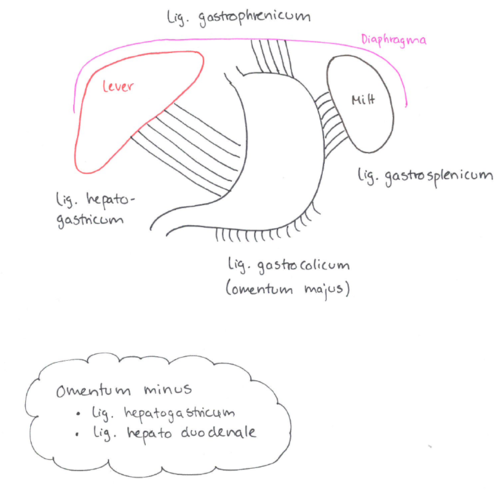 Lig. gastrophrenicum
Diaphragma
Lever
Milt
Lig. gastrosplenicum
Lig. hepato-
gastricum
Lig. gastrocolicum
(omentum majus)
Omentum minus
• Lig. hepatogastricum
• Lig. hepato duodenale